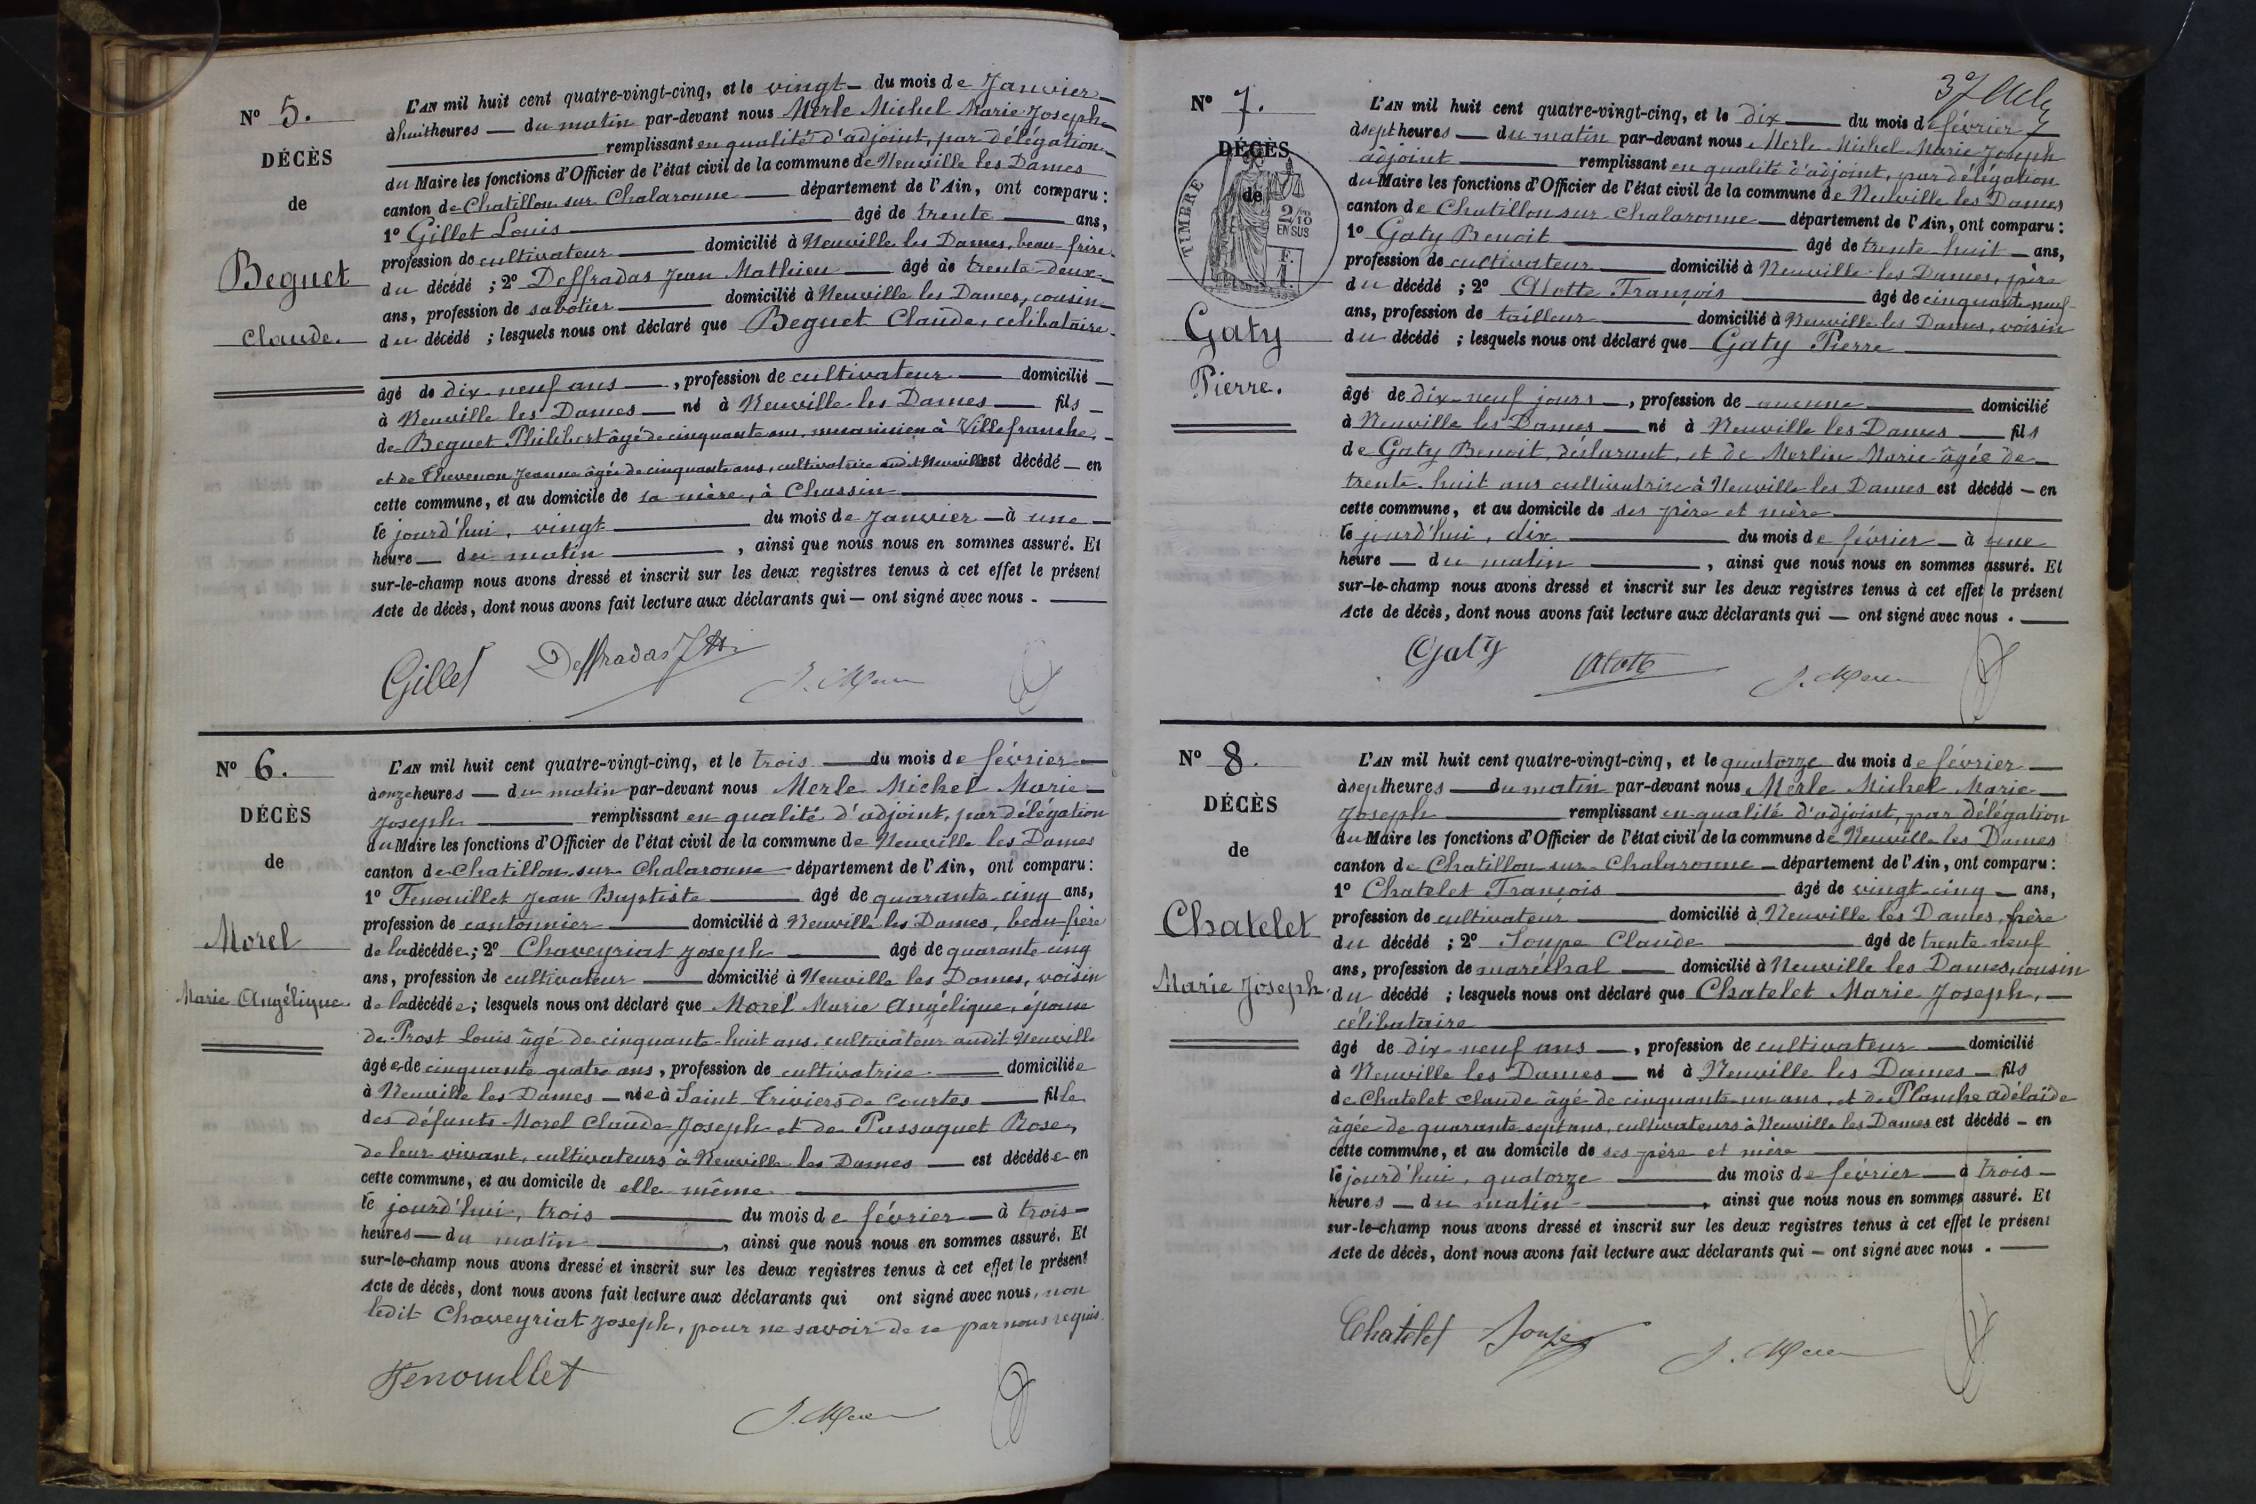 N° 5.
DÉCÈS
de
Beguet
Claude.
L'AN mil huit cent quatre-vingt-cinq, et le vingt du mois de Janvier
à huit heures du matin par-devant nous Merle Michel Marie Joseph
remplissant en qualité d'adjoint, par délégation
du Maire les fonctions d'Officier de l'état civil de la commune de Neuville les Dames
canton de Chatillon sur Chalaronne département de l'Ain, ont comparu :
1° Gillet Louis âgé de trente ans,
profession de cultivateur domicilié à Neuville les Dames, beau-frère
du décédé ; 2° Deffradas Jean Mathieu âgé de trente-deux
ans, profession de sabotier domicilié à Neuville les Dames, cousin
du décédé ; lesquels nous ont déclaré que Beguet Claude, célibataire
âgé de dix-neuf ans, profession de cultivateur domicilié
à Neuville les Dames né à Neuville les Dames fils
de Beguet Philibert âgé de cinquante ans, mécanicien à Villefranche,
et de Thevenon Jeanne âgée de cinquante ans, cultivatrice audit Neuville est décédé en
cette commune, et au domicile de sa mère, à Chassin
le jourd'hui, vingt du mois de Janvier à une
heure du matin, ainsi que nous nous en sommes assuré. Et
sur-le-champ nous avons dressé et inscrit sur les deux registres tenus à cet effet le présent
Acte de décès, dont nous avons fait lecture aux déclarants qui — ont signé avec nous.
Gillet Deffradas J. Merle
N° 6.
DÉCÈS
de
Morel
Marie Angélique
L'AN mil huit cent quatre-vingt-cinq, et le trois du mois de février
à onze heures du matin par-devant nous Merle Michel Marie
Joseph remplissant en qualité d'adjoint, par délégation
du Maire les fonctions d'Officier de l'état civil de la commune de Neuville les Dames
canton de Chatillon sur Chalaronne département de l'Ain, ont comparu :
1° Fenouillet Jean Baptiste âgé de quarante cinq ans,
profession de cantonnier domicilié à Neuville les Dames, beau-frère
de la décédée ; 2° Chaveyriat Joseph âgé de quarante cinq
ans, profession de cultivateur domicilié à Neuville les Dames, voisin
de la décédée ; lesquels nous ont déclaré que Morel Marie Angélique, épouse
de Prost Louis âgé de cinquante-huit ans, cultivateur audit Neuville
âgée de cinquante quatre ans, profession de cultivatrice domiciliée
à Neuville les Dames née à Saint Triviers de Courtes fille
des défunts Morel Claude Joseph et de Passaquet Rose,
de leur vivant, cultivateurs à Neuville les Dames est décédée en
cette commune, et au domicile de elle même
le jourd'hui, trois du mois de février à trois
heures du matin, ainsi que nous nous en sommes assuré. Et
sur-le-champ nous avons dressé et inscrit sur les deux registres tenus à cet effet le présent
Acte de décès, dont nous avons fait lecture aux déclarants qui ont signé avec nous, non
ledit Chaveyriat Joseph, pour ne savoir de ce par nous requis.
Fenouillet
J. Merle
N° 7.
DÉCÈS
de
TIMBRE
2/10
EN SUS
F.
1.
Gaty
Pierre.
L'AN mil huit cent quatre-vingt-cinq, et le dix du mois de février
à sept heures du matin par-devant nous Merle Michel Marie Joseph
adjoint remplissant en qualité d'adjoint, par délégation
du Maire les fonctions d'Officier de l'état civil de la commune de Neuville les Dames
canton de Chatillon sur Chalaronne département de l'Ain, ont comparu :
1° Gaty Benoit âgé de trente-huit ans,
profession de cultivateur domicilié à Neuville les Dames, père
du décédé ; 2° Alotte François âgé de cinquante neuf
ans, profession de tailleur domicilié à Neuville les Dames, voisin
du décédé ; lesquels nous ont déclaré que Gaty Pierre
âgé de dix-neuf jours, profession de aucune domicilié
à Neuville les Dames né à Neuville les Dames fils
de Gaty Benoit, déclarant, et de Merlin Marie âgée de
trente-huit ans cultivatrice à Neuville les Dames est décédé en
cette commune, et au domicile de ses père et mère
le jourd'hui, dix du mois de février à une
heure du matin, ainsi que nous nous en sommes assuré. Et
sur-le-champ nous avons dressé et inscrit sur les deux registres tenus à cet effet le présent
Acte de décès, dont nous avons fait lecture aux déclarants qui — ont signé avec nous.
Gaty Alotte J. Merle
N° 8.
DÉCÈS
de
Chatelet
Marie Joseph.
L'AN mil huit cent quatre-vingt-cinq, et le quatorze du mois de février
à sept heures du matin par-devant nous Merle Michel Marie
Joseph remplissant en qualité d'adjoint, par délégation
du Maire les fonctions d'Officier de l'état civil de la commune de Neuville les Dames
canton de Chatillon sur Chalaronne département de l'Ain, ont comparu :
1° Chatelet François âgé de vingt-cinq ans,
profession de cultivateur domicilié à Neuville les Dames, frère
du décédé ; 2° Soupe Claude âgé de trente neuf
ans, profession de maréchal domicilié à Neuville les Dames, cousin
du décédé ; lesquels nous ont déclaré que Chatelet Marie Joseph,
célibataire
âgé de dix-neuf ans, profession de cultivateur domicilié
à Neuville les Dames né à Neuville les Dames fils
de Chatelet Claude âgé de cinquante-un ans, et de Planche Adélaïde
âgée de quarante sept ans, cultivateurs à Neuville les Dames est décédé en
cette commune, et au domicile de ses père et mère
le jourd'hui, quatorze du mois de février à trois
heures du matin, ainsi que nous nous en sommes assuré. Et
sur-le-champ nous avons dressé et inscrit sur les deux registres tenus à cet effet le présent
Acte de décès, dont nous avons fait lecture aux déclarants qui — ont signé avec nous.
Chatelet Soupe J. Merle